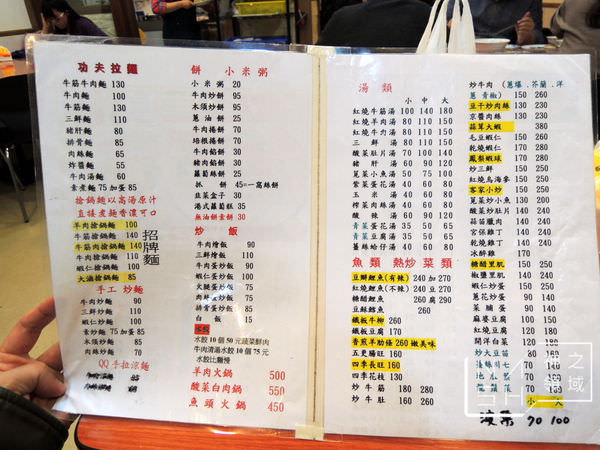 功夫拉麵
牛筋牛肉麵 130
牛筋麵 130
牛肉麵 110
三鮮麵 110
豬肝麵 80
排骨麵 85
肉絲麵 65
炸醬麵 55
牛肉湯麵 60
素煮麵 75 加蛋 85
搶鍋麵以高湯原汁
直接煮麵香濃可口
羊肉搶鍋麵 100
牛筋搶鍋麵 140
牛筋肉搶鍋麵 140
牛肉搶鍋麵 110
蝦仁搶鍋麵 100
大滷搶鍋麵 85
招牌麵
手工 炒麵
牛肉炒麵 90
三鮮炒麵 110
蝦仁炒麵 90
素炒麵 75 加蛋 85
木須炒麵 85
肉絲炒麵 80
QQ 手拉涼麵
餅 小米粥
小米粥 20
牛肉炒餅 95
木須炒餅 90
蔥油餅 25
牛肉捲餅 100
培根捲餅 100
牛肉餡餅 30
豬肉餡餅 30
蘿蔔絲餅 25
抓餅 45=一窩絲餅
韭菜盒子 30
港式蘿蔔糕 35
無油餅素餅 30
炒飯
牛肉燴飯 90
三鮮燴飯 110
牛肉蛋炒飯 90
蝦仁蛋炒飯 90
火腿蛋炒飯 75
肉絲蛋炒飯 75
白飯 15
水餃
水餃 10 個 50 元蔬菜鮮肉
牛肉清湯水餃 10 個 75 元
水餃比麵慢
羊肉火鍋 500
酸菜白肉鍋 550
魚頭火鍋 450
湯類
小 中 大
紅燒牛筋湯 100 140 180
紅燒羊肉湯 80 110 140
紅燒牛力湯 80 110 140
三鮮湯 80 110 140
酸菜肚片湯 70 100 140
豬肝湯 60 90 120
莧菜小魚湯 50 70 100
紫菜蛋花湯 40 60 80
玉米湯 40 60 80
榨菜肉絲湯 40 60 80
酸辣湯 60 90 120
青菜蛋花湯 35 50 80
青菜豆腐湯 35 50 80
薑絲蛤仔湯 40 60 80
魚類 熱炒菜類
豆瓣鯉魚(有辣) 240 加 270
紅燒鯉魚(不辣) 240 豆 270
糖醋鯉魚 260 腐 290
豆酥鱈魚 260
鐵板牛柳 260
鐵板豆腐 170
香煎羊肋條 260 嫩美味
五更腸旺 160
四季長旺 160
四季花枝 130
炒牛筋 180 280
炒牛肚 160 260
炒牛肉 (蔥爆.芥蘭.洋
蔥 青椒) 150 260
豆干炒肉絲 130 230
京醬肉絲 130 230
蒜茸大蝦 380
毛豆蝦仁 150 260
乾燒蝦仁 170 280
鳳梨蝦球 170 280
炒三鮮 150 250
紅燒烏海參 150 250
客家小炒 150 250
莧菜炒小魚 130 210
酸菜炒肚片 140 240
蒜苗臘肉 140 240
宮保雞丁 140 240
乾燒雞丁 140 240
冰醉雞 170
糖醋里肌 150 250
椒鹽里肌 150 250
蝦仁炒蛋 150 250
蔥花炒蛋 90 150
菜脯蛋 90 150
麻婆豆腐 90 150
紅燒豆腐 90 150
開洋白菜 90 150
炒大豆苗
小 大
菠菜 70 100
之
域